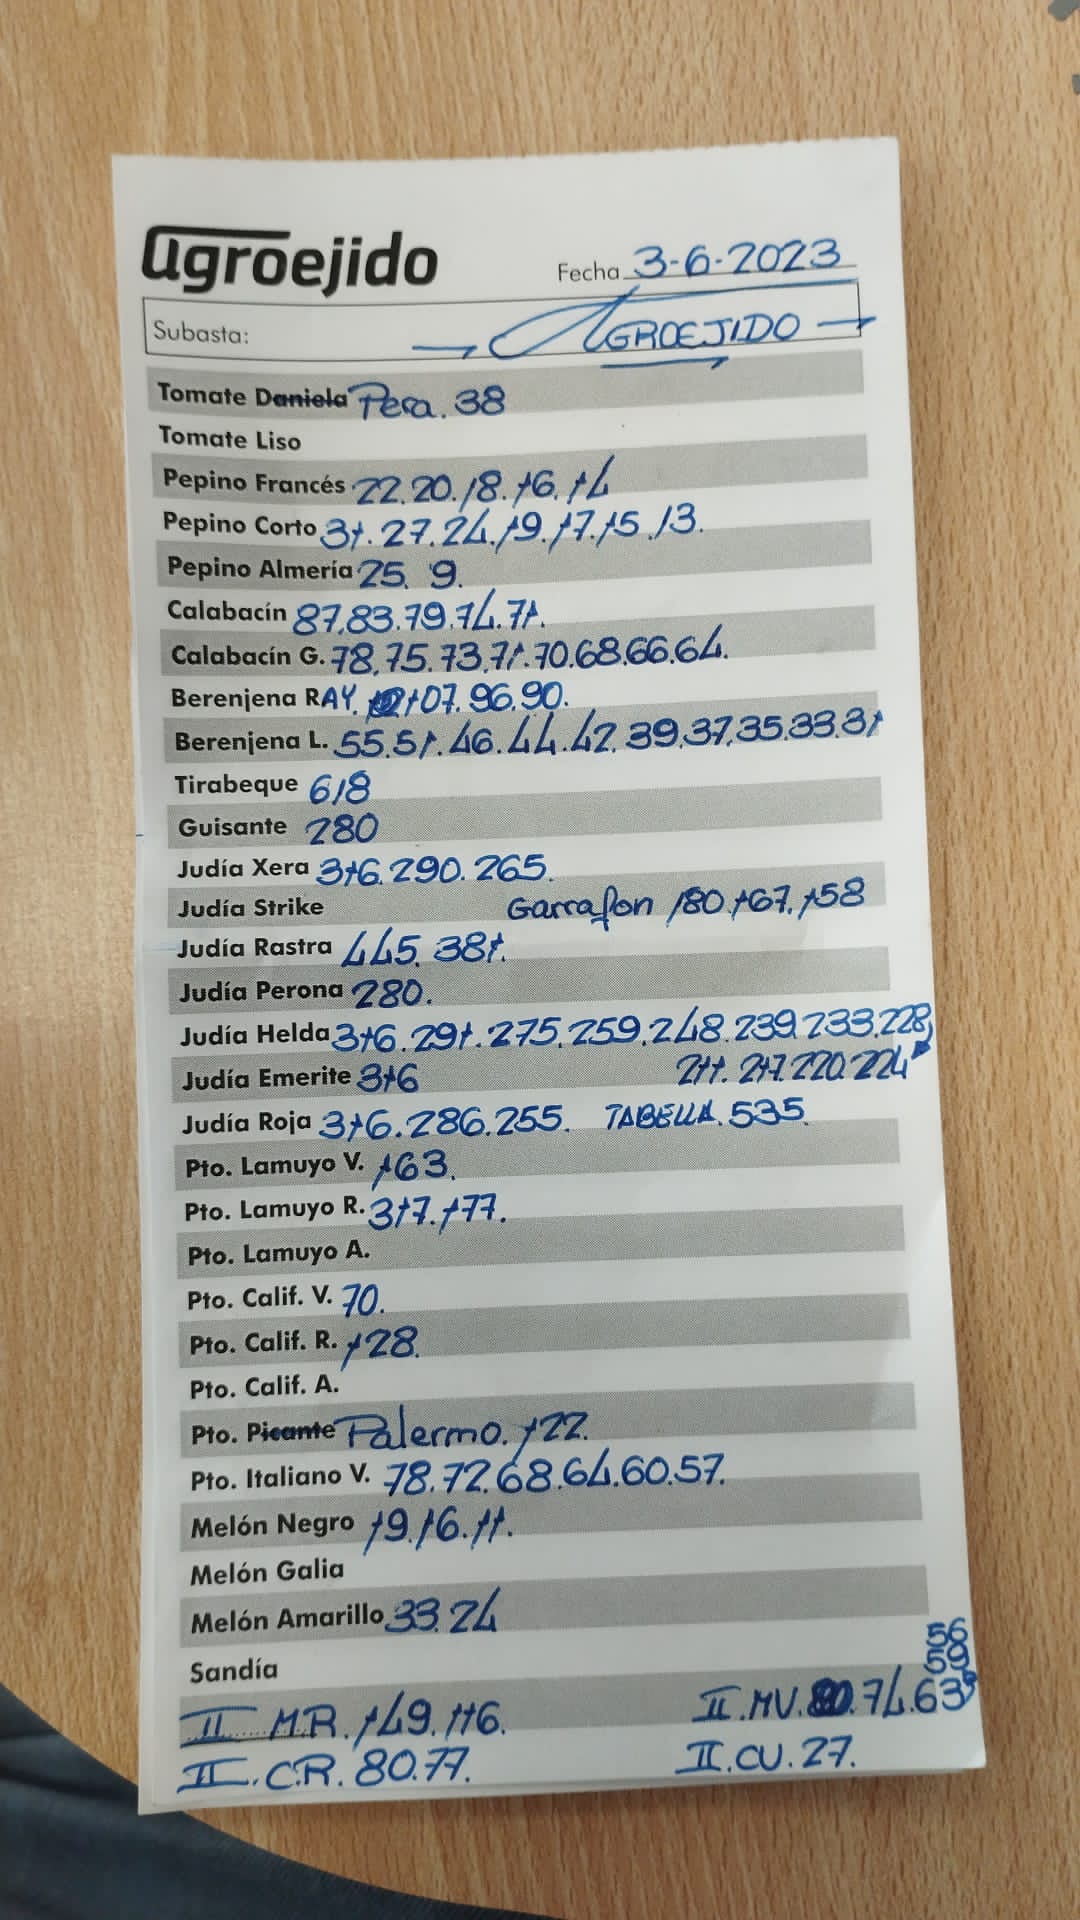 agroejido
Fecha 3-6-2023
Subasta: AGROEJIDO
Tomate Daniela Pera. 38
Tomate Liso
Pepino Francés 22. 20. 18. 16. 14
Pepino Corto 31. 27. 24. 19. 17. 15. 13.
Pepino Almería 25. 9.
Calabacín 87. 83. 79. 74. 71.
Calabacín G. 78. 75. 73. 71. 70. 68. 66. 64.
Berenjena RAY. 107. 96. 90.
Berenjena L. 55. 51. 46. 44. 42. 39. 37. 35. 33. 31
Tirabeque 618
Guisante 280
Judía Xera 316. 290. 265.
Judía Strike Garrafon 180. 167. 158
Judía Rastra 445. 381.
Judía Perona 280.
Judía Helda 316. 291. 275. 259. 248. 239. 233. 228
Judía Emerite 316 211. 217. 220. 224
Judía Roja 316. 286. 255. TABELLA. 535.
Pto. Lamuyo V. 163.
Pto. Lamuyo R. 317. 177.
Pto. Lamuyo A.
Pto. Calif. V. 70.
Pto. Calif. R. 128.
Pto. Calif. A.
Pto. Picante Palermo. 122.
Pto. Italiano V. 78. 72. 68. 64. 60. 57.
Melón Negro 19. 16. 11.
Melón Galia
Melón Amarillo 33. 24
Sandía
56
59
II MR. 149. 116. II. MV. 80. 74. 63
II. C.R. 80. 77. II. CU. 27.